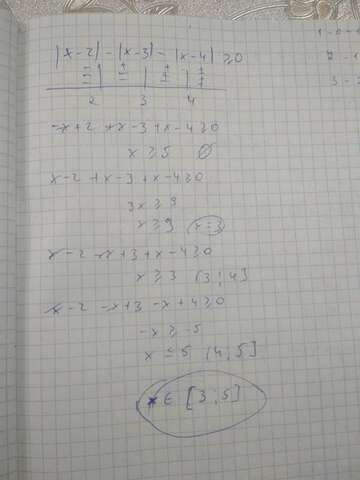 |x-2| - |x-3| - |x-4| ≥0
2 3 4
-x+2 +x-3 +x-4≥0
x ≥ 5 ∅
x-2 +x-3 +x-4≥0
3x ≥ 9
x=3
x-2 -x+3 +x-4≥0
x ≥ 3 (3;4]
x-2 -x+3 -x+4≥0
-x ≥ -5
x ≤ 5 (4;5]
x ∈ [3;5]